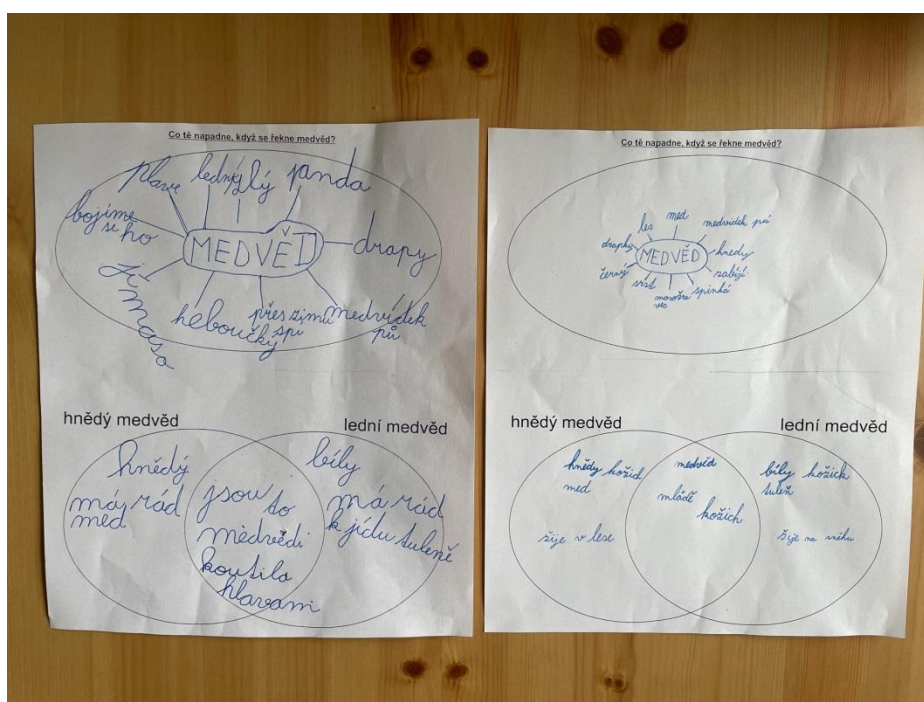 Co tě napadne, když se řekne medvěd?
plave
lední
panda
bojíme
se ho
MEDVĚD
drapy
jí maso
heboučký
přes zimu
spí
medvídek
pů
hnědý medvěd
lední medvěd
hnědý
má rád
med
jsou to
medvědi
koutila
hlavami
bíly
má rád
k jídlu tuleně
Co tě napadne, když se řekne medvěd?
les
med
medvídek pú
drapky
MEDVĚD
hnedy
černý
zabíjí
spinká
hnědý medvěd
lední medvěd
hnědy kožich
med
žije v lese
medvěd
mládě
kožich
bíly kožich
tuleň
žije na sněhu